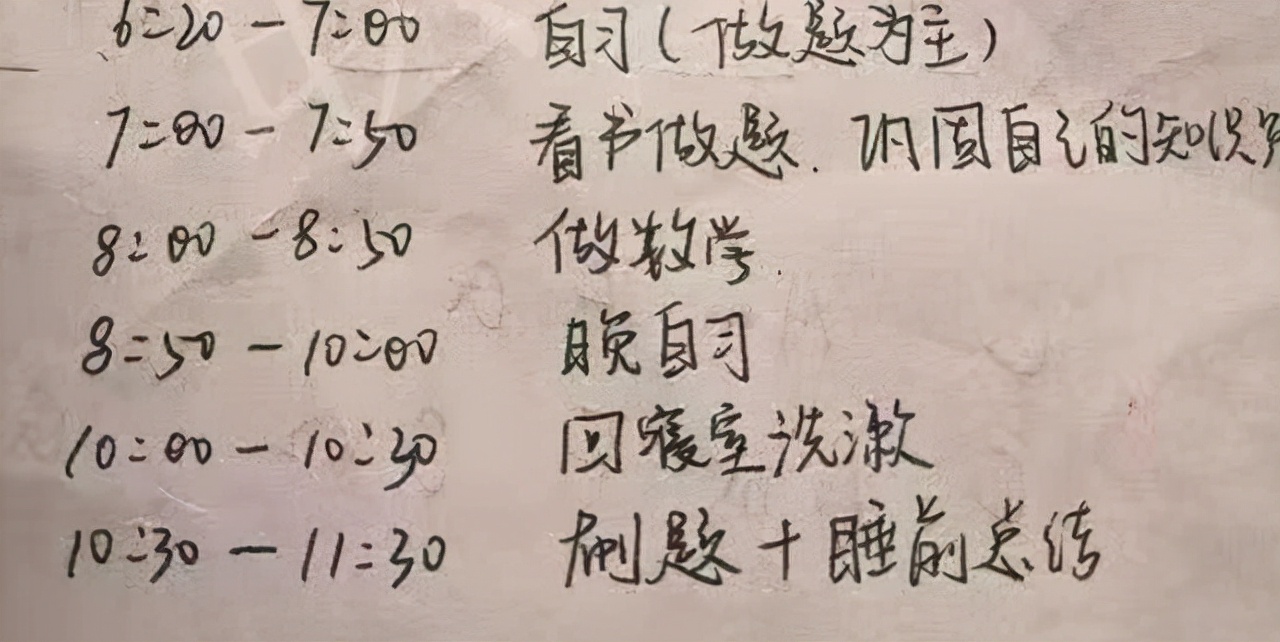 6:20 - 7:00 自习(做题为主)
7:00 - 7:50 看书做题. 巩固自己的知识
8:00 - 8:50 做数学.
8:50 - 10:00 晚自习
10:00 - 10:30 回寝室洗漱
10:30 - 11:30 刷题+睡前总结